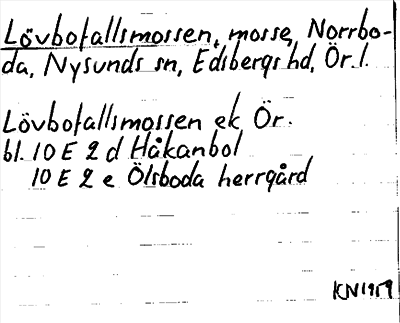 Lövbotallsmossen, mosse, Norrbo-
da, Nysunds sn, Edsbergs hd, Ör. l.
Lövbotallsmossen ek Ör.
bl. 10 E 2 d Håkanbol
10 E 2 e Ölsboda herrgård
KN1959